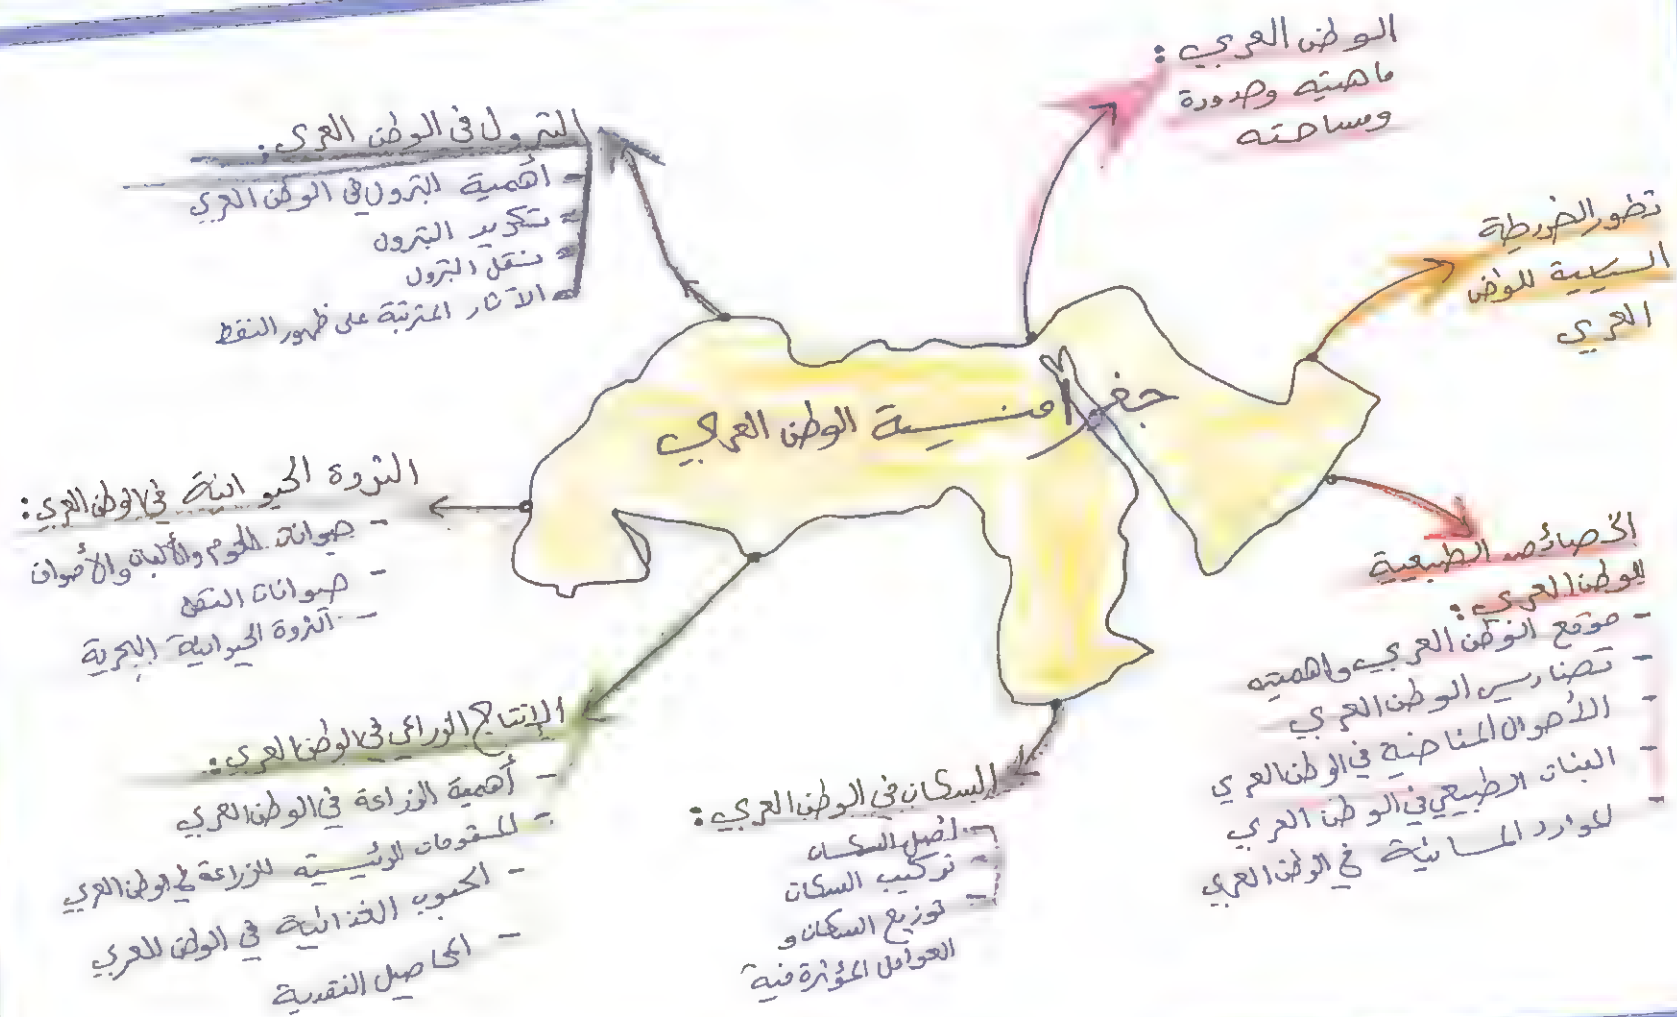 جغرافية الوطن العربي
الوطن العربي:
ماهيته وحدودة
ومساحته
تطور الخريطة
السياسية للوطن
العربي
الخصائص الطبيعية
للوطن العربي:
- موقع الوطن العربي واهميته
- تضاريس الوطن العربي
- الأحوال المناخية في الوطن العربي
- النبات الطبيعي في الوطن العربي
- الموارد المائية في الوطن العربي
السكان في الوطن العربي:
- أصل السكان
- تركيب السكان
- توزيع السكان و
العوامل المؤثرة فية
الإنتاج الزراعي في الوطن العربي:
- أهمية الزراعة في الوطن العربي
- المقومات الرئيسية للزراعة في الوطن العربي
- الحبوب الغذائية في الوطن العربي
- المحاصيل النقدية
الثروة الحيوانية في الوطن العربي:
- حيوانات اللحوم والألبان والأصواف
- حيوانات النقل
- الثروة الحيوانية البحرية
البترول في الوطن العربي:
- أهمية البترول في الوطن العربي
- تكرير البترول
- نقل البترول
- الآثار المترتبة على ظهور النفط